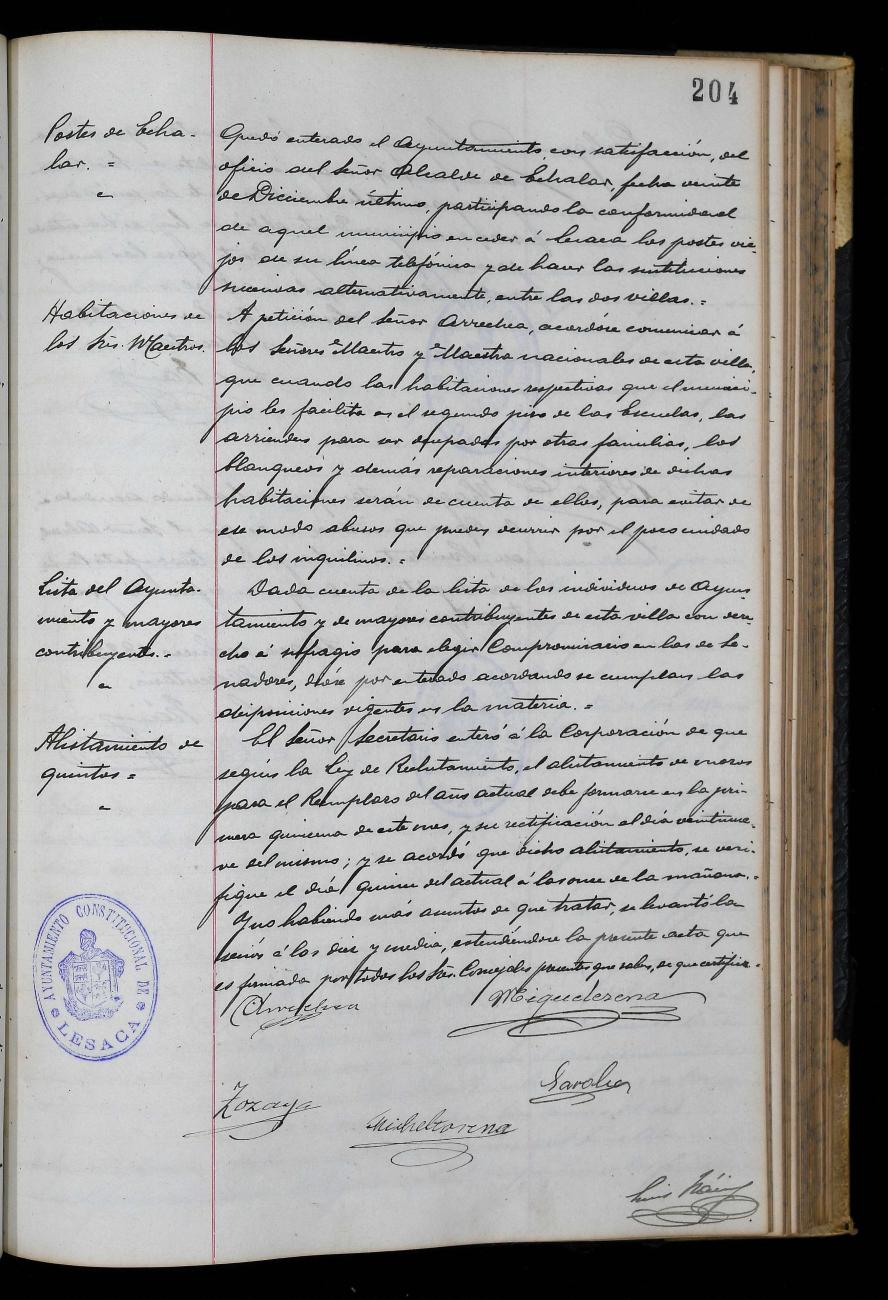 204
Postes de Echa-
lar. =
Quedó enterado el Ayuntamiento con satisfacción, del
oficio del Señor Alcalde de Echalar, fecha veinte
de Diciembre último, participando la conformidad
de aquel municipio en ceder á Lesaca los postes vie-
jos de su línea telefónica y de hacer las sustituciones
sucesivas alternativamente, entre las dos villas. =
Habitaciones de
los Sres. Maestros.
A petición del Señor Arrechea, acordóse comunicar á
los Señores Maestro y Maestra nacionales de esta villa,
que cuando las habitaciones respectivas que el munici-
pio les facilita en el segundo piso de las Escuelas, las
arrienden para ser ocupadas por otras familias, los
blanqueos y demás reparaciones interiores de dichas
habitaciones serán de cuenta de ellos, para evitar de
ese modo abusos que pueden ocurrir por el poco cuidado
de los inquilinos. =
Lista del Ayunta-
miento y mayores
contribuyentes. =
Dada cuenta de la lista de los individuos de Ayun
tamiento y de mayores contribuyentes de esta villa con dere-
cho á sufragio para elegir Compromisario en las de Se-
nadores, dióse por enterado acordando se cumplan las
disposiciones vigentes en la materia. =
Alistamiento de
quintos =
El Señor Secretario enteró á la Corporación de que
según la Ley de Reclutamiento, el alistamiento de mozos
para el Reemplazo del año actual debe formarse en la pri-
mera quincena de este mes, y su rectificación el día veintinue-
ve del mismo; y se acordó que dicho alistamiento, se veri-
fique el día quince del actual á las once de la mañana. =
Y no habiendo más asuntos de que tratar, se levantó la
sesión á las diez y media, extendiéndose la presente acta que
es firmada por todos los Sres. Concejales presentes que saben, de que certifico. =
AYUNTAMIENTO CONSTITUCIONAL DE
LESACA
Arrechea
Miquelerena
Zozaya
Micheltorena
Luis